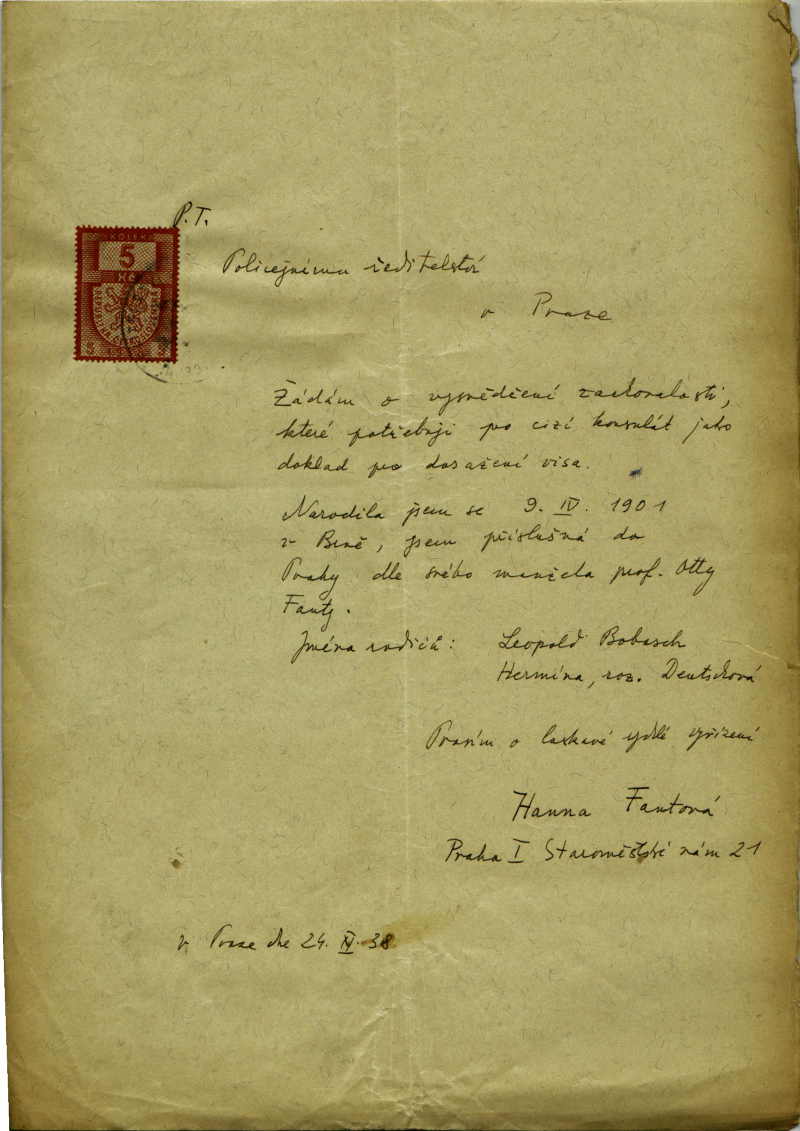 P.T.
KOLEK
5
Kč
Policejnímu ředitelství
v Praze
5 5
Žádám o vysvědčení zachovalosti,
které potřebuji pro cizí konsulát jako
doklad pro dosažení visa.
Narodila jsem se 9. IV. 1901
v Brně, jsem příslušná do
Prahy dle svého manžela prof. Otty
Fanty.
Jména rodičů: Leopold Bobasch
Hermína, roz. Deutschová
Prosím o laskavé rychlé vyřízení
Hanna Fantová
Praha I Staroměstské nám 21
v Praze dne 24. IV. 38